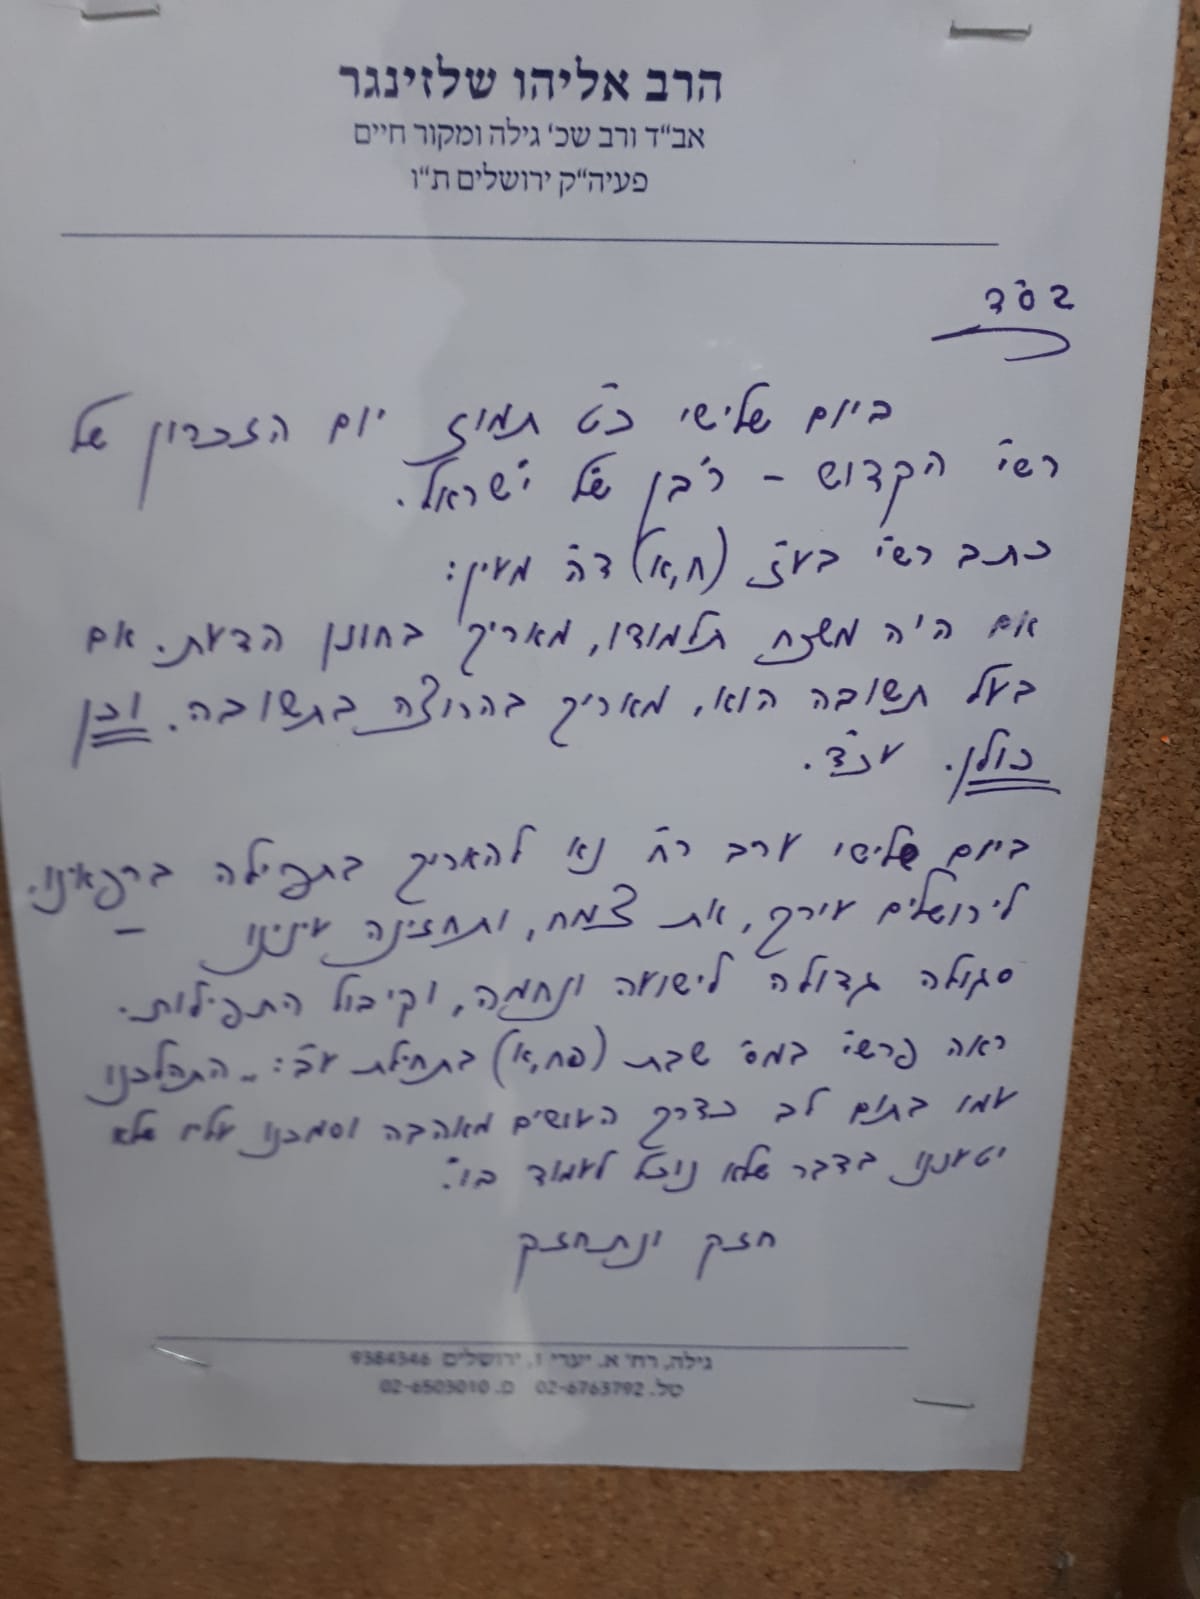 הרב אליהו שלזינגר
אב"ד ורב שכ' גילה ומקור חיים
פעיה"ק ירושלים ת"ו
בס"ד
ביום שלישי כ"ט תמוז יום הזכרון של
רש"י הקדוש - רבן של ישראל.
כתב רש"י בע"ז (ח,א) ד"ה מעין:
אם היה משכח תלמודו, מאריך בחונן הדעת. אם
בעל תשובה הוא, מאריך בהרוצה בתשובה. וכן
כולן. עכ"ד.
ביום שלישי ערב ר"ח נא להאריך בתפילה ברפאינו.
לירושלים עירך, את צמח, ותחזינה עינינו -
סגולה גדולה לישועה ונחמה, וקיבול התפילות.
ראה פרש"י במס' שבת (פח,א) בתחילת ע"ב: "התהלכנו
עמו בתום לב כדרך העושים מאהבה וסמכנו עליו שלא
יטעננו בדבר שלא נוכל לעמוד בו".
חזק ונתחזק
גילה, רח' א. יערי 1, ירושלים 9384346
טל. 02-6763792 פ. 02-6505010